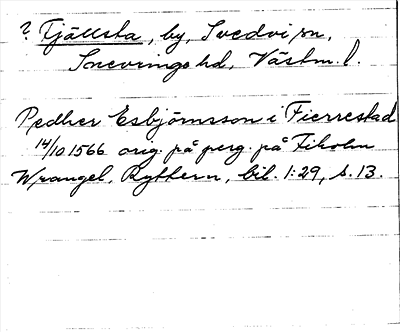 ? Fjällsta, by, Svedvi sn,
Snevringe hd, Västm. l.
Pedher Esbjörnsson i Fierrestad
14/10 1566 orig. på perg. på Fiholm
Wrangel, Rytthern, bil. 1:29, s. 13.